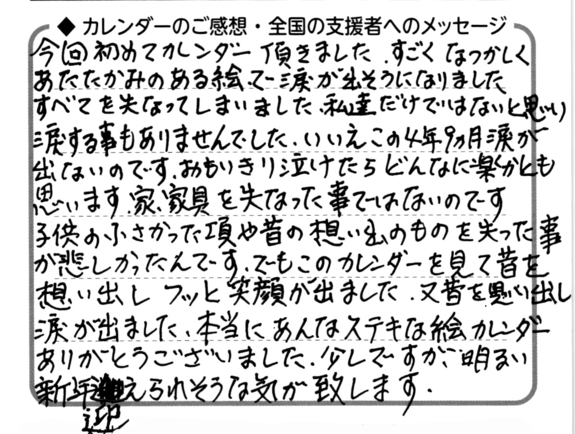 ◆ カレンダーのご感想・全国の支援者へのメッセージ
今回初めてカレンダー頂きました、すごくなつかしく
あたたかみのある絵で涙が出そうになりました
すべてを失なってしまいました、私達だけではないと思い
涙する事もありませんでした、いいえこの4年9ヵ月涙が
出ないのです、おもいきり泣けたらどんなに楽かとも
思います、家、家具を失なった事ではないのです
子供の小さかった項や昔の想い出のものを失った事
が悲しかったんです、でもこのカレンダーを見て昔を
想い出し フッと笑顔が出ました、又昔を思い出し
涙が出ました、本当にあんなステキな絵カレンダー
ありがとうございました、少しですが、明るい
新年迎えられそうな気が致します.